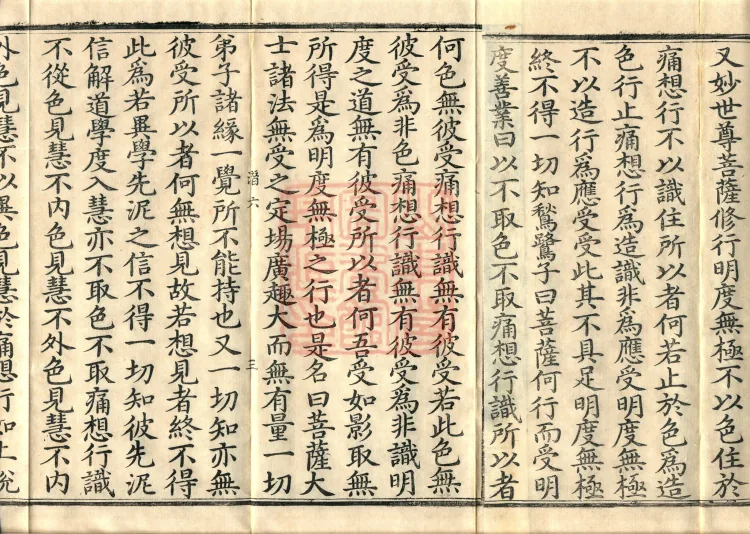 又妙世尊菩薩修行明度無極不以色住於
痛想行不以識住所以者何若止於色爲造
色行止痛想行爲造識非爲應受明度無極
不以造行爲應受受此其不具足明度無極
終不得一切知鶖鷺子曰菩薩何行而受明
度善業曰以不取色不取痛想行識所以者
何色無彼受痛想行識無有彼受若此色無
彼受爲非色痛想行識無有彼受爲非識明
度之道無有彼受所以者何吾受如影取無
所得是爲明度無極之行也是名曰菩薩大
士諸法無受之定場廣趣大而無有量一切
潛六 三
弟子諸緣一覺所不能持也又一切知亦無
彼受所以者何無想見故若想見者終不得
此爲若異學先泥之信不得一切知彼先泥
信解道學度入慧亦不取色不取痛想行識
不從色見慧不内色見慧不外色見慧不内
外色見慧不以異色見慧於痛想行如上說